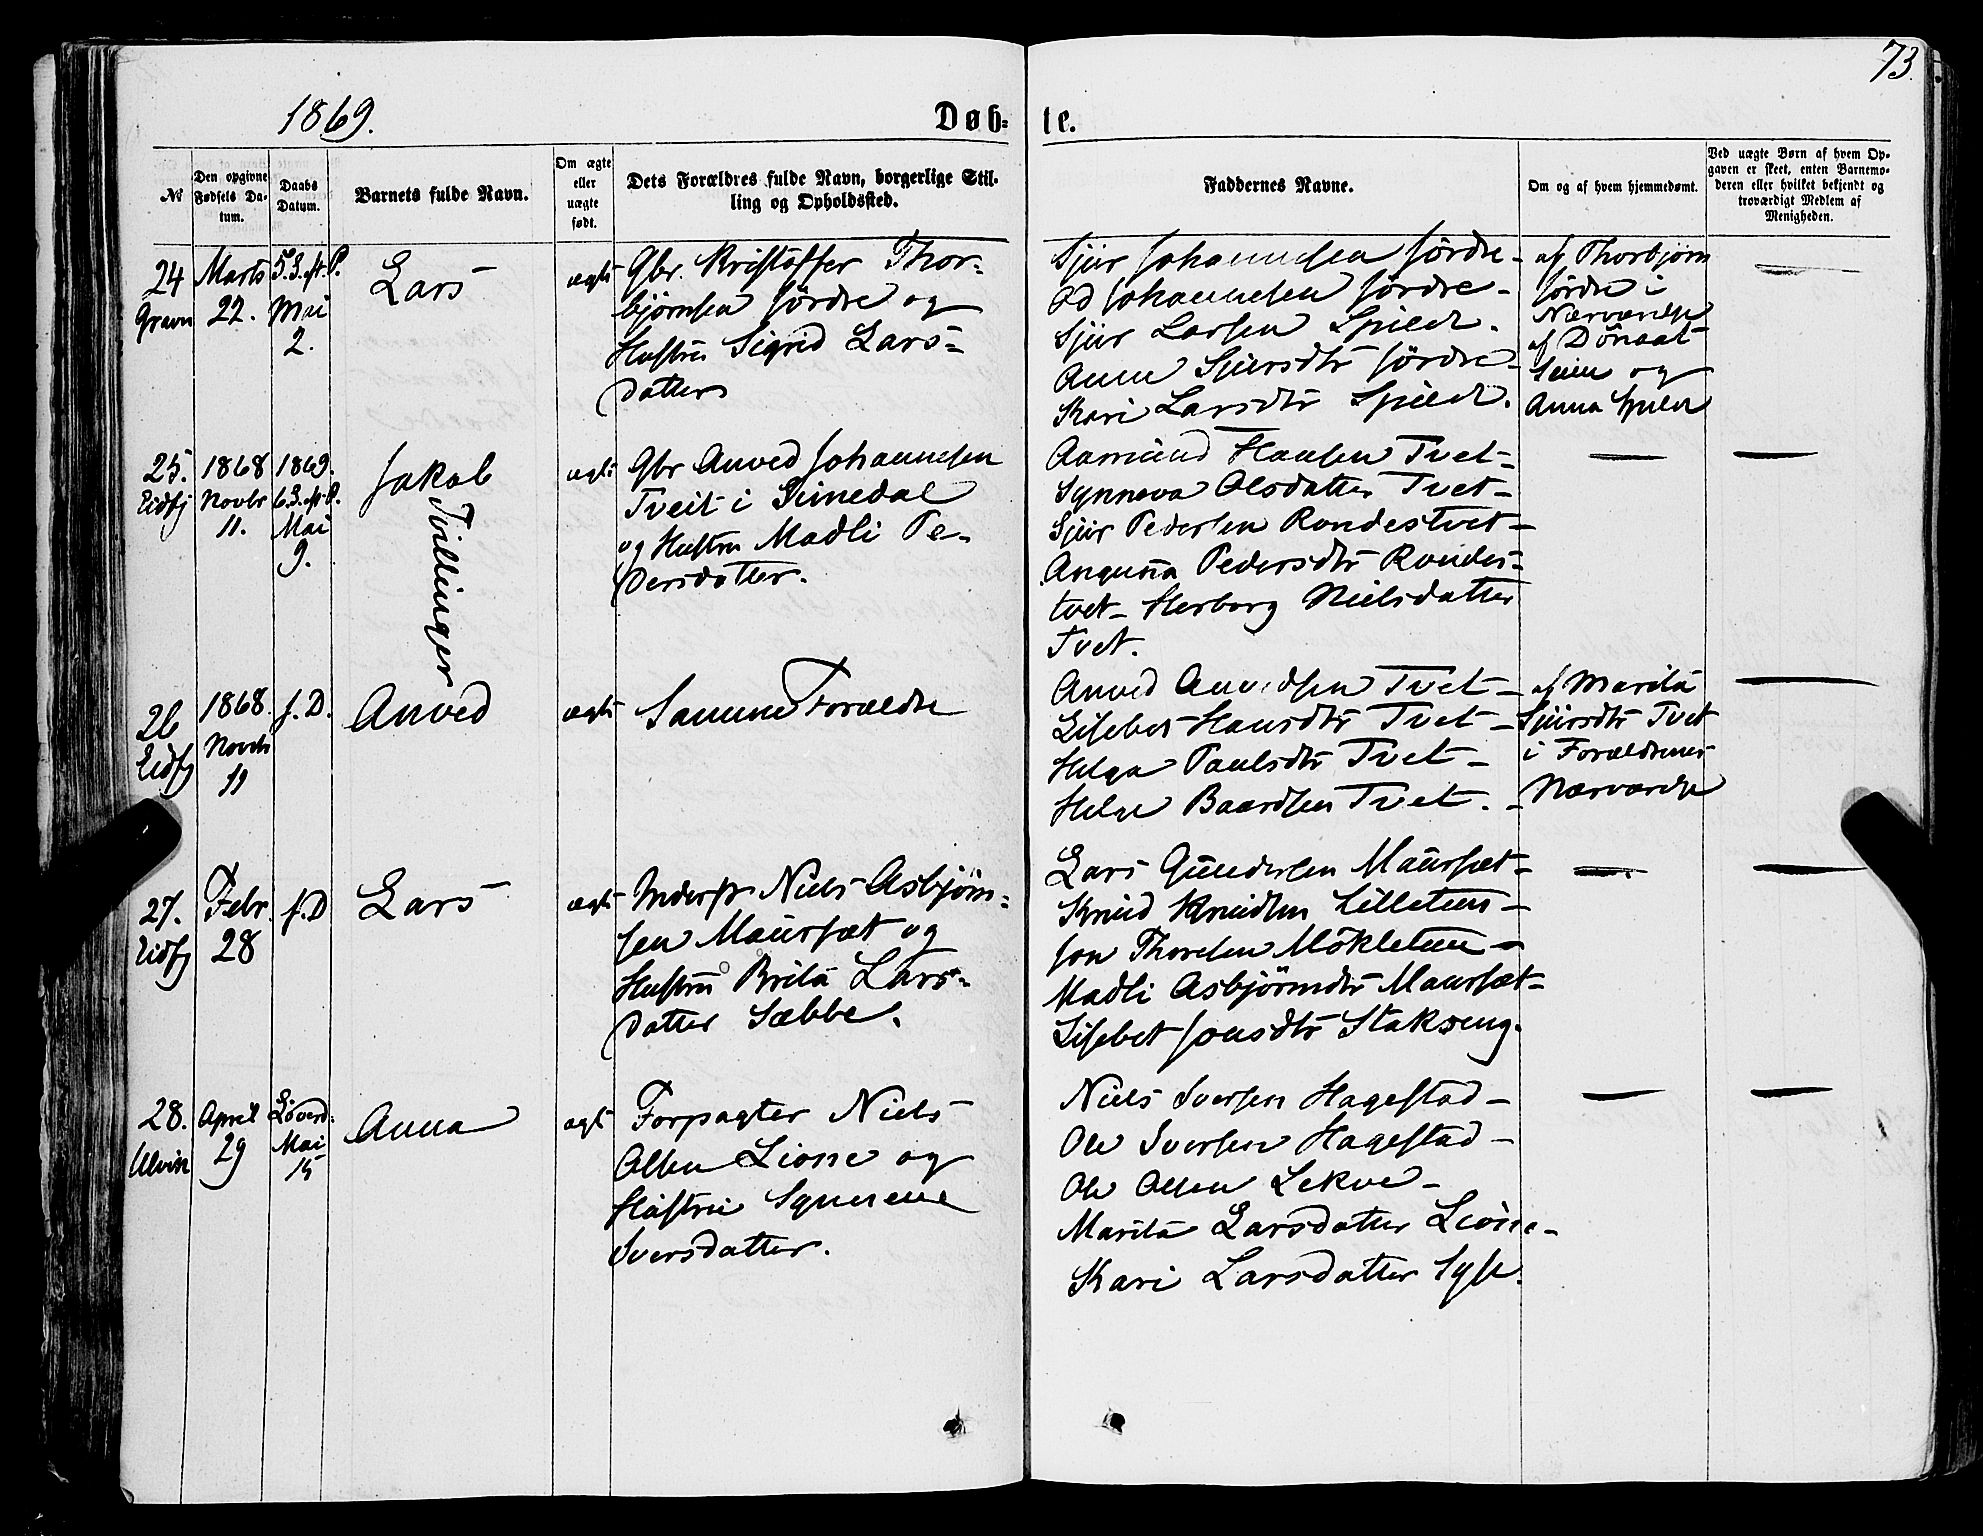 73
1869.
Døb-
te.
№
Den opgivne Fødsels Da-
tum.
Daabs
Datum.
Barnets fulde Navn.
Om ægte
eller
uægte
født.
Dets Forældres fulde Navn, borgerlige Stil-
ling og Opholdssted.
Faddernes Navne.
Om og af hvem hjemmedøbt.
Ved uægte Børn af hvem Op-
gaven er skeet, enten Barnemo-
deren eller hvilket bekjendt og
troværdigt Medlem af
Menigheden.
24
Gravn
Marts
22.
5.S.eft.P.
Mai
2.
Lars
ægte
Gbr. Kristoffer Thor-
bjørnsen Jördre og
Hustru Sigrid Lars-
datter
Sjur Johannesen Jördre-
Od Johannesen Jördre-
Sjur Larsen Spilde.
Anna Sjursdtr Jördre-
Kari Larsdtr Spilde.
af Thorbjørn
Jördre i
Nærværelse
af
og
Anna Spilde
25.
Eidfj
1868
Novbr
11.
1869.
6.S.eft.P.
Mai
9.
Jakob
Tvillinger
ægte
Gbr Anved Johannesen
Tveit i Simedal
og Hustru Madli Pe-
dersdatter.
Aamund Hansen Tvet-
Synneva Olsdatter Tvet-
Sjur Pedersen Rondestvet-
Angunna Pedersdtr Rondes-
tvet- Herborg Nielsdatter
Tvet.
26
Eidfj
1868.
Novbr
11
s.D.
Anved
ægte
Samme Forældre
Anved Anvedsen Tvet-
Lisebet Hansdtr Tvet-
Helga Paulsdtr Tvet-
Helge Baardsen Tvet.-
af Marita
Sjursdtr Tvet
i Forældrenes
Nærværelse
27.
Eidfj
Febr.
28
s.D
Lars
ægte
Inderst Niels Asbjørn-
sen Maursæt og
Hustru Brita Lars-
datter Sæbbe.
Lars Gundersen Maursæt-
Knud Knudsen Lilletun-
Jon Thorsen Mökletun-
Madli Asbjörnsdtr Maursæt-
Lisebet Jonsdtr Stakseng.
28.
Ulvik
April
29
Løverd.
Mai
15
Anna
ægte
Forpagter Niels
Olsen Lione og
Hustru
Iversdatter.
Niels Iversen Hagestad-
Ole Iversen Hagestad-
Ole Olsen Lekve-
Marita Larsdatter Lione-
Kari Larsdatter Syse.